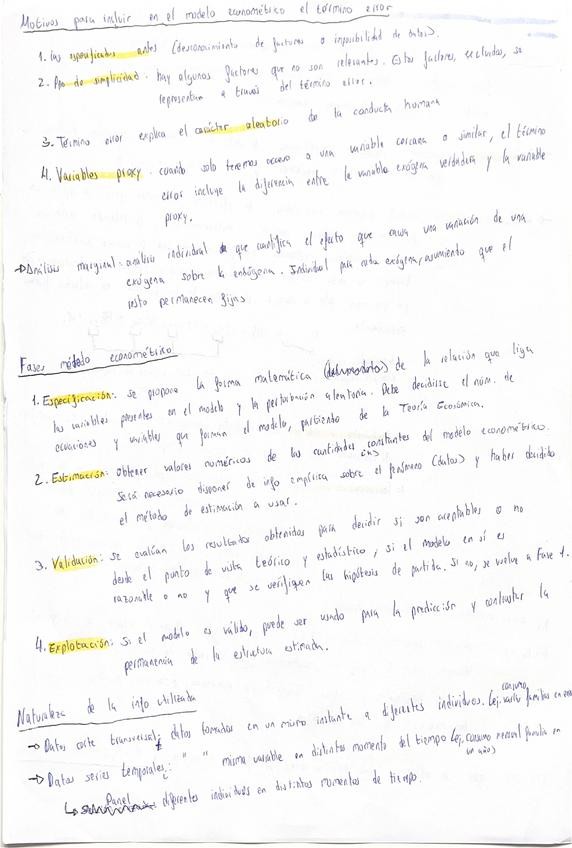 Motivos para incluir en el modelo econométrico el término error
1. Las especificadas antes (desconocimiento de factores o imposibilidad de datos).
2. Por de simplicidad. hay algunos factores que no son relevantes. Estos factores, excluidos, se
representan a través del término error.
3. Término error explica el carácter aleatorio de la conducta humana
4. Variables proxy. cuando solo tenemos acceso a una variable cercana o similar, el término
error incluye la diferencia entre la variable exógena verdadera y la variable
proxy.
→ Análisis marginal: análisis individual que cuantifica el efecto que causa una variación de una
exógena sobre la endógena. Individual para cada exógena, asumiento que el
resto permanecen fijas
Fases modelo econométrico
1. Especificación: se propone la forma matemática de la relación que liga
las variables presentes en el modelo y la perturbación aleatoria. Debe decidirse el núm. de
ecuaciones y variables que forman el modelo, partiendo de la Teoría Económica.
2. Estimación: Obtener valores numéricos de las cantidades constantes del modelo econométrico.
Será necesario disponer de info empírica sobre el fenómeno (datos) y haber decidido
el método de estimación a usar.
3. Validación: se evalúan los resultados obtenidos para decidir si son aceptables o no
desde el punto de vista teórico y estadístico, si el modelo en sí es
razonable o no y que se verifiquen las hipótesis de partida. Si no, se vuelve a Fase 1.
4. Explotación: Si el modelo es válido, puede ser usado para la predicción y contrastar la
permanencia de la estructura estimada.
Naturaleza de la info utilizada
→ Datos corte transversal: datos tomados en un mismo instante a diferentes individuos. (ej. consumo familias en
→ Datos series temporales: " " misma variable en distintos momento del tiempo (ej, consumo mensual familia en
un año)
↳ Panel diferentes individuos en distintos momentos de tiempo.